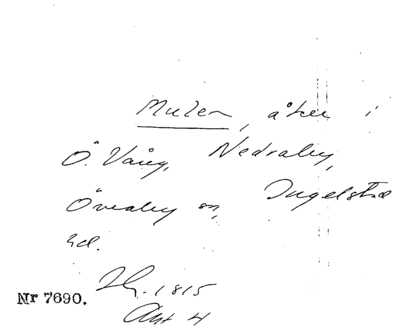 Mulen, åker i
Ö. Vång, Nedraby,
Övraby sn, Ingelstad
hd.
1815
Akt 4
Nr 7690.